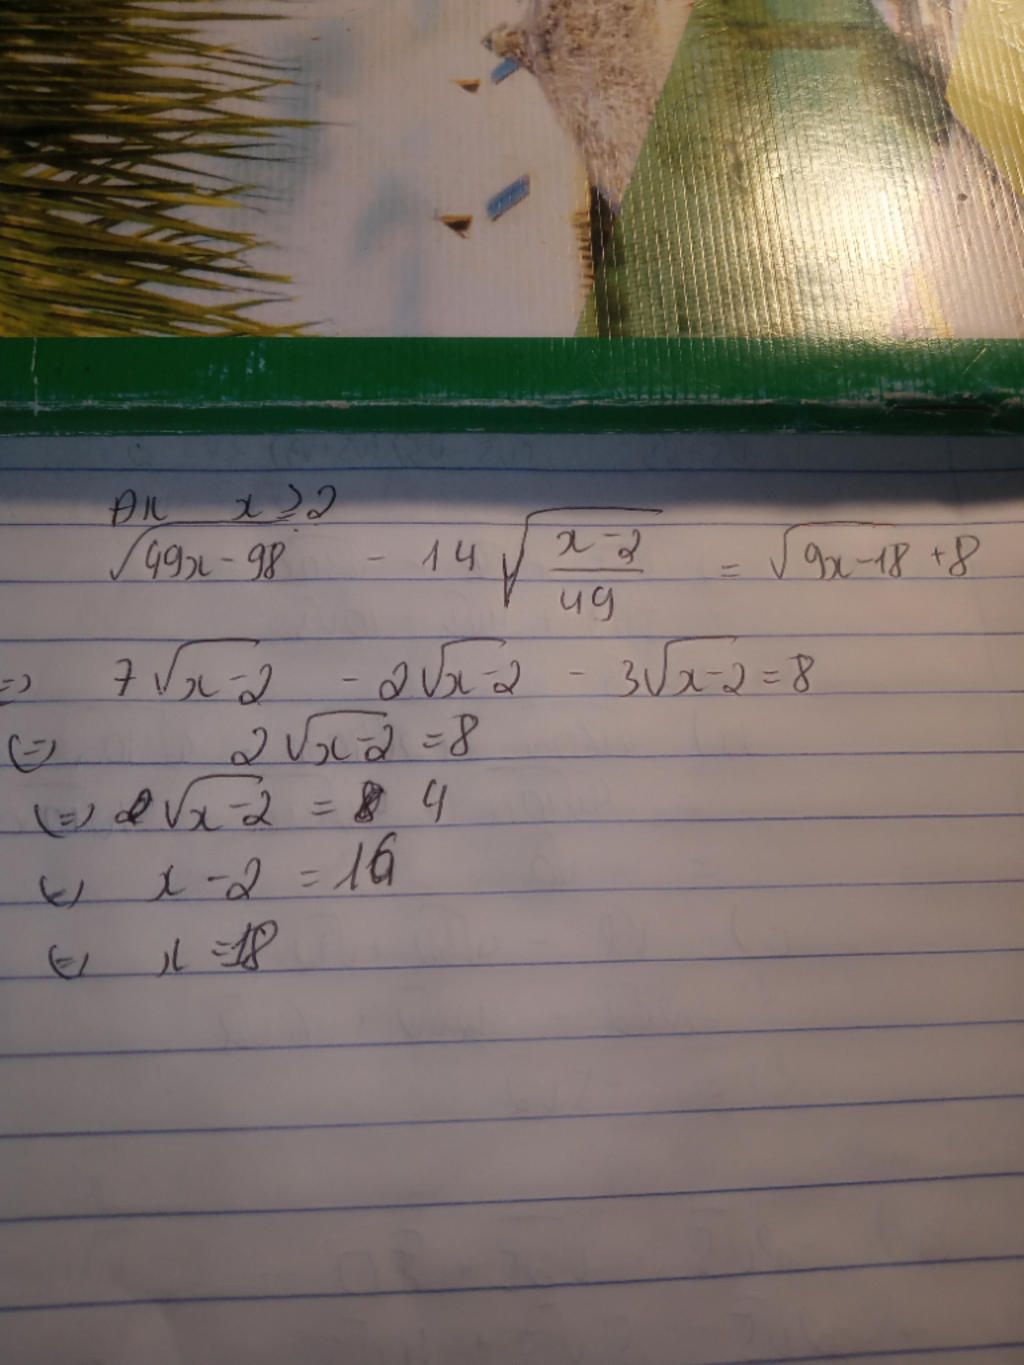 ĐK x ≥ 2
√49x - 98 - 14 √(x - 2)/49 = √9x - 18 + 8
=> 7√x - 2 - 2√x - 2 - 3√x - 2 = 8
(=) 2√x - 2 = 8
(=) √x - 2 = 4
(=) x - 2 = 16
(=) x = 18